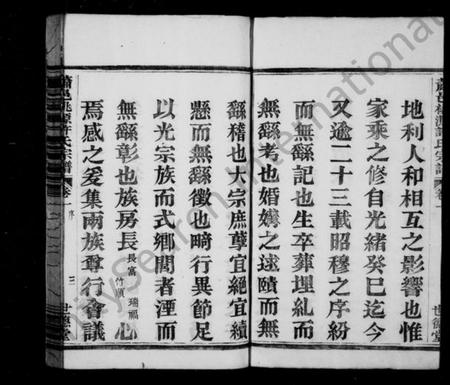 地利人和相互之影響也惟
家乘之修自光緒癸巳迄今
又逾二十三載昭穆之序紛
而無繇記也生卒葬埋紊而
無繇考也婚媾之遠賾而無
繇稽也大宗庶孽宜絕宜續
懸而無繇徵也畸行異節足
以光宗族而式鄉閭者湮而
無繇彰也族房長長富 竹順 瑞福心
焉感之爰集兩族尊行會議
蕭邑桃源許氏宗譜 卷一 序 三 世德堂